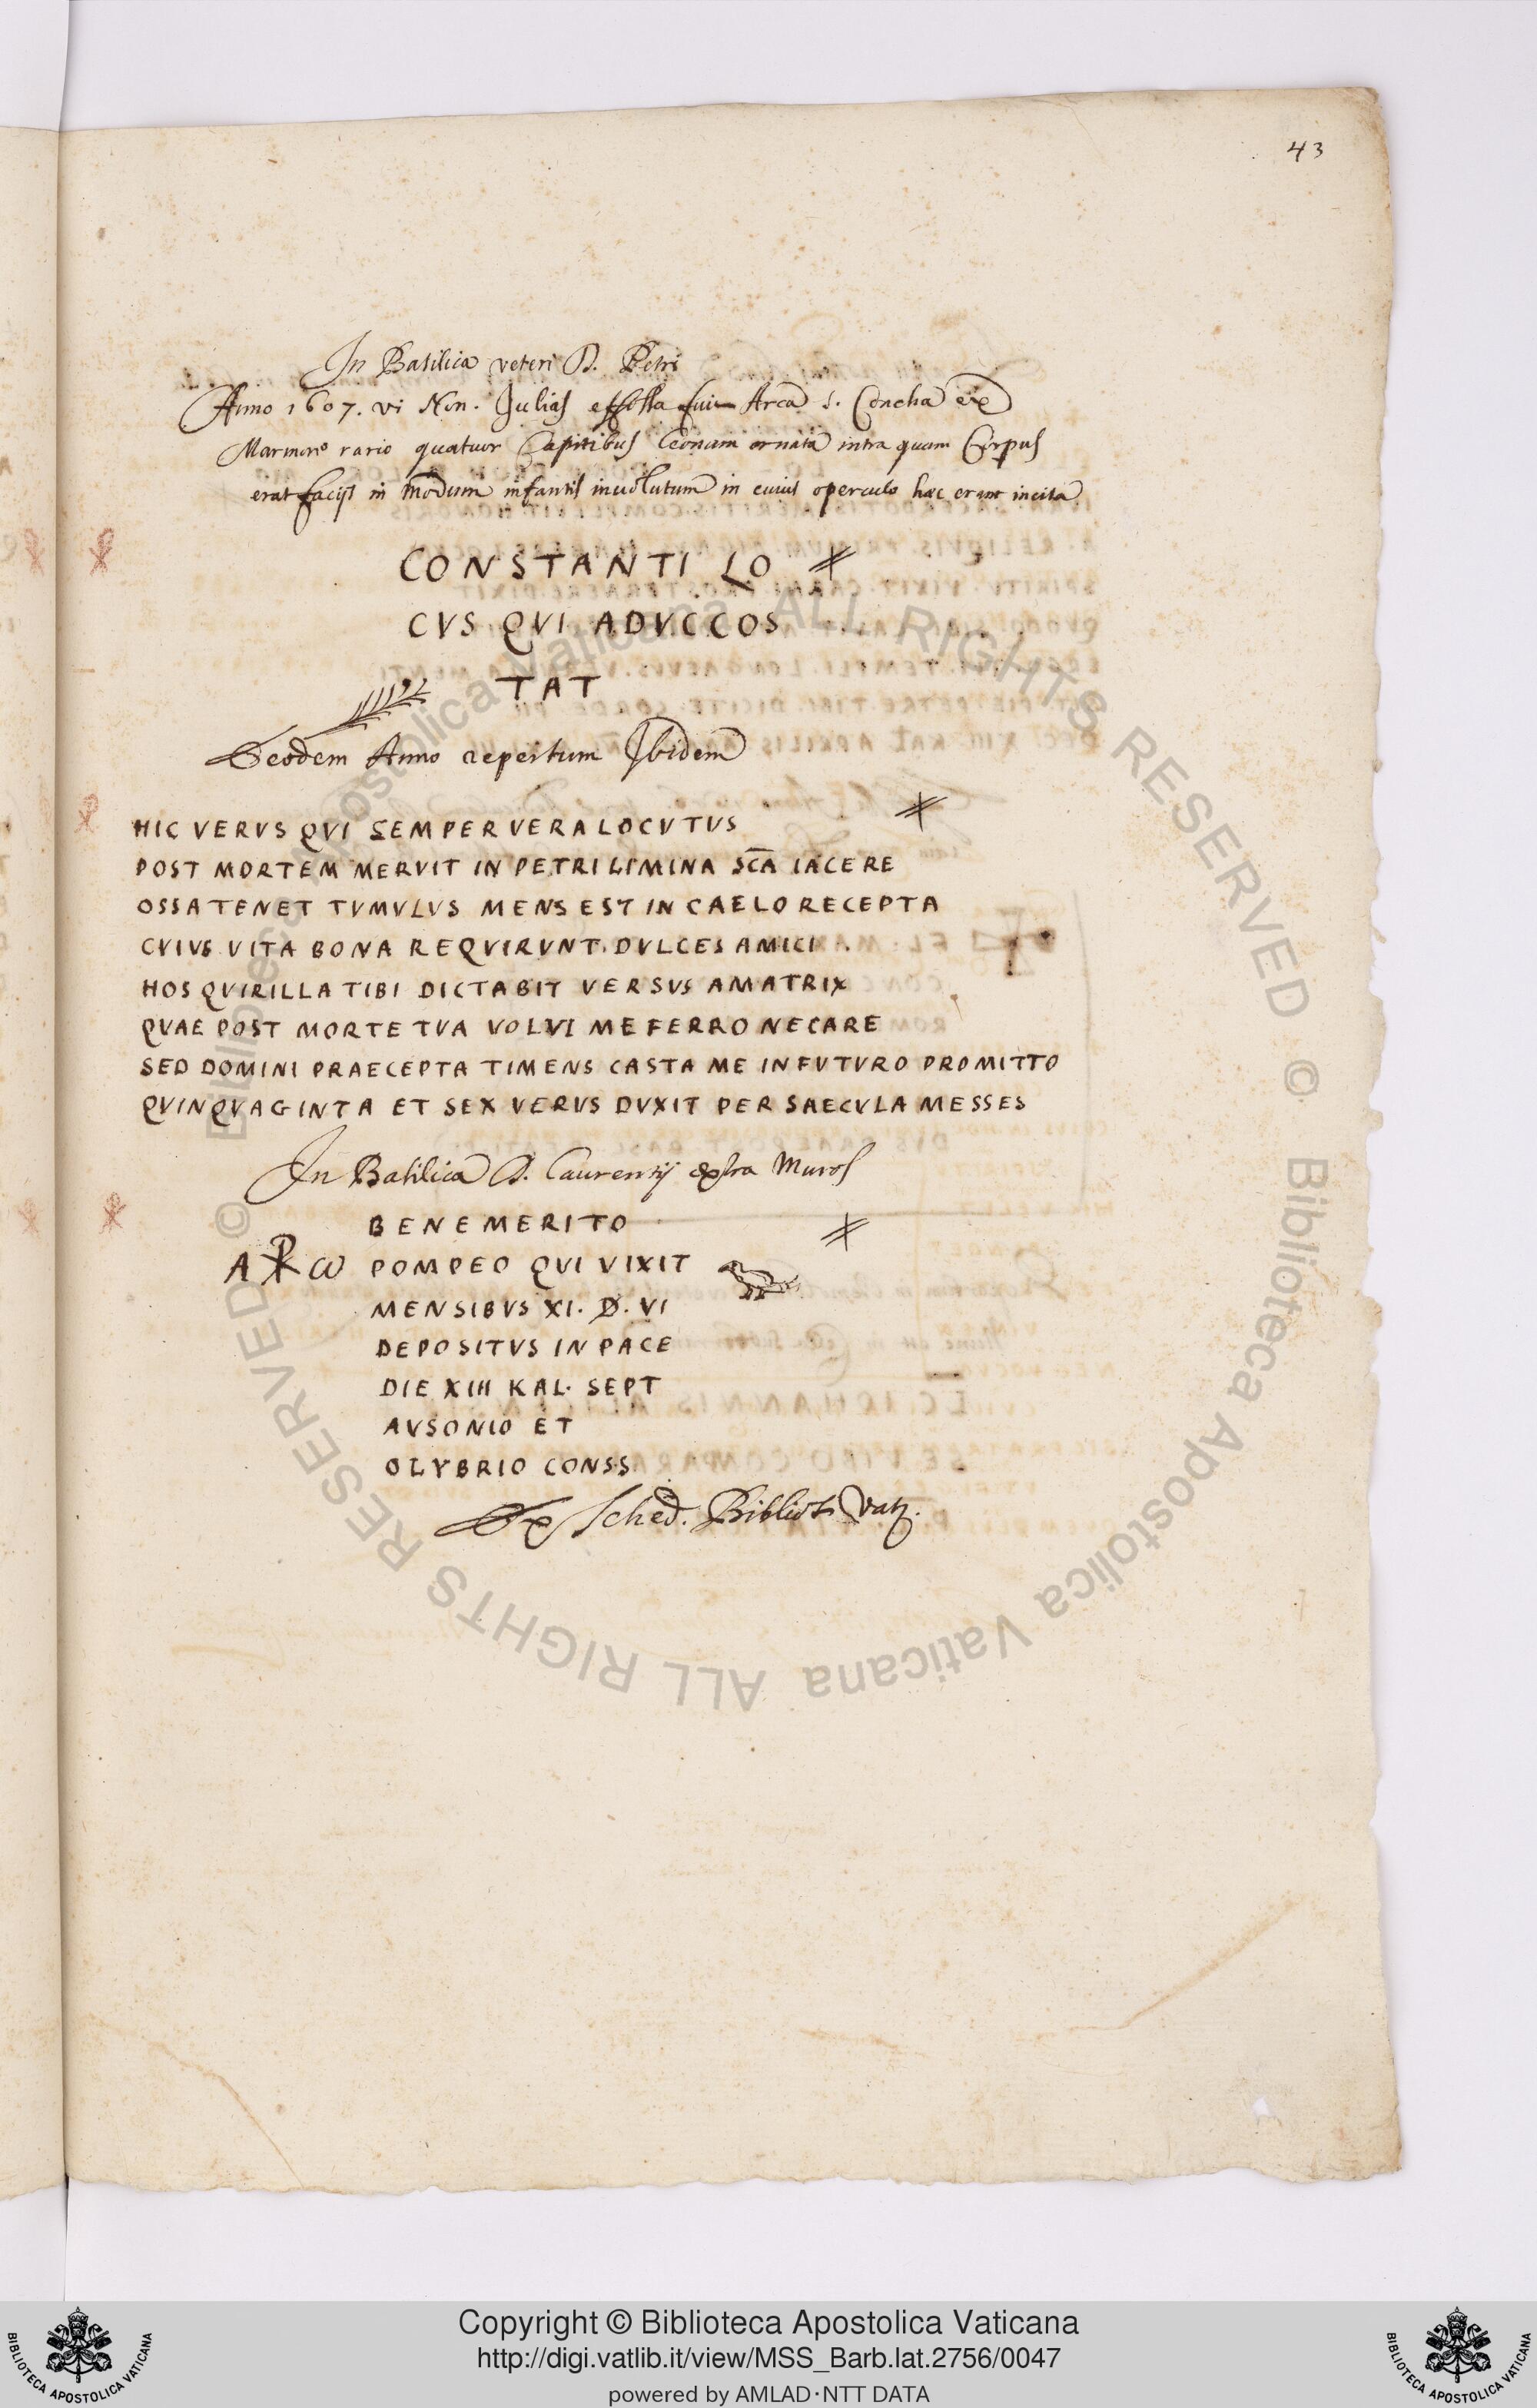 43
In Basilica veteri D. Petri
Anno 1607. vi Non. Julias effossa fuit Arca s. Concha ex
Marmore rario quatuor Capitibus Leonum ornata intra quam Corpus
erat facijs in modum infantis inuolutum in cuius operculo hæc erant incisa
CONSTANTI LO
CVS QVI ADVCCOS
TAT
Eeodem Anno repertum Ibidem
HIC VERVS QVI SEMPER VERA LOCVTVS
POST MORTEM MERVIT IN PETRI LIMINA SCA IACERE
OSSA TENET TVMVLVS MENS EST IN CAELO RECEPTA
CVIVS VITA BONA REQVIRVNT. DVLCES AMICI
HOS QVIRILLA TIBI DICTABIT VERSVS AMATRIX
QVAE POST MORTE TVA VOLVI ME FERRO NECARE
SED DOMINI PRAECEPTA TIMENS CASTA ME IN FVTVRO PROMITTO
QVINQVAGINTA ET SEX VERVS DVXIT PER SAECVLA MESSES
In Basilica D. Laurentij extra Muros
BENEMERITO
A ☧ ω POMPEO QVI VIXIT
MENSIBVS XI. D. VI
DEPOSITVS IN PACE
DIE XIII KAL. SEPT
AVSONIO ET
OLYBRIO CONSS
Ex Sched. Bibliot. Vat.
© Biblioteca Apostolica Vaticana ALL RIGHTS RESERVED © Biblioteca Apostolica Vaticana ALL RIGHTS RESERVED
Copyright © Biblioteca Apostolica Vaticana
http://digi.vatlib.it/view/MSS_Barb.lat.2756/0047
powered by AMLAD·NTT DATA
BIBLIOTECA APOSTOLICA VATICANA
BIBLIOTECA APOSTOLICA VATICANA